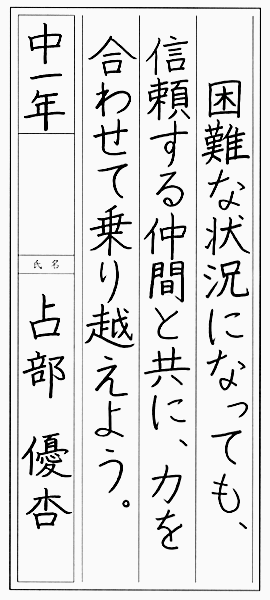 困難な状況になっても、
信頼する仲間と共に、力を
合わせて乗り越えよう。
中一年
氏名
占部 優杏